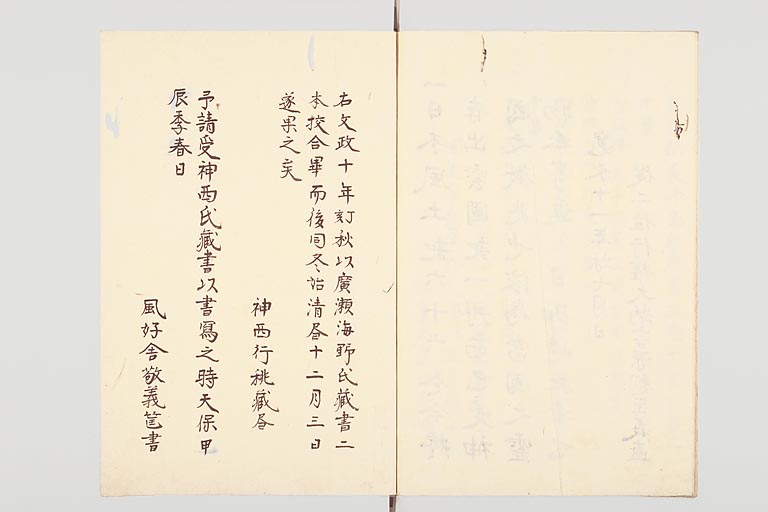 右文政十年初秋以廣瀬海野氏蔵書二
本挍合畢而後同冬始清昼十二月三日
遂果之矣
神西行桃蔵昼
予請受神西氏蔵書以書寫之時天保甲
辰季春日
風好舎敬義筐書